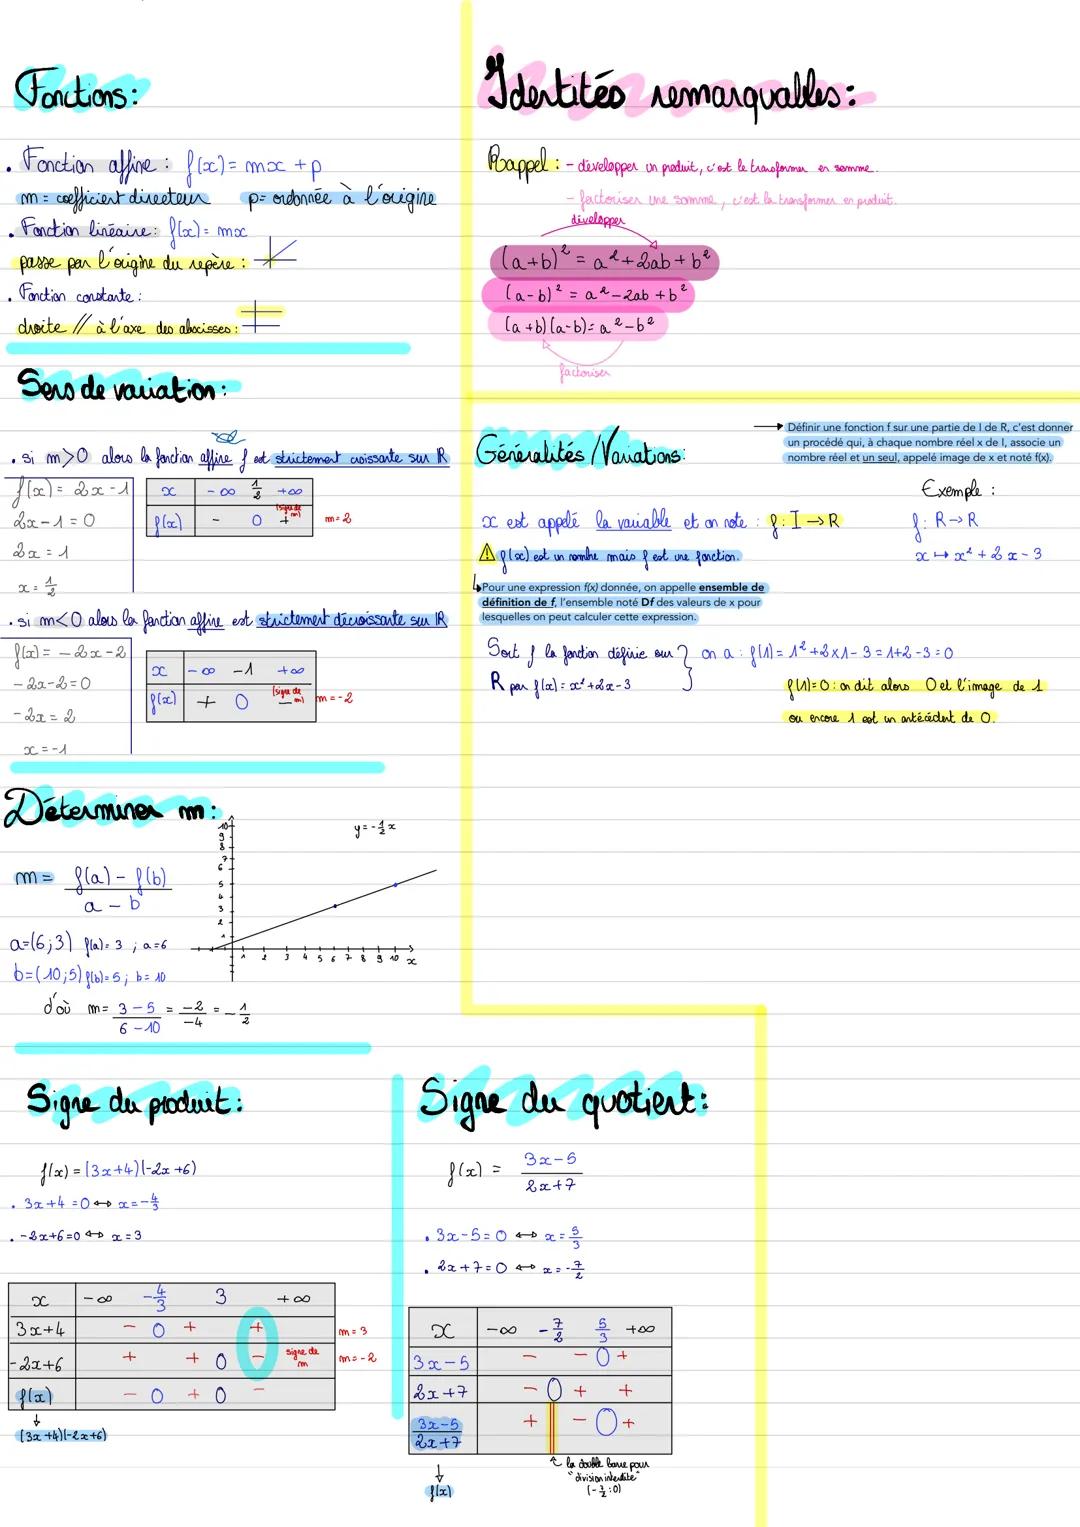 Fonctions:
. Fonction affine : f(x) = mx + p
m = coefficient directeur p = ordonnée à l'origine
. Fonction linéaire: f(x) = mx
passe par l'origine du repère :
. Fonction constante :
droite // à l'axe des abscisses :
Sens de variation:
. si m>0 alors la fonction affine f est strictement croissante sur R
f(x) = 2x - 1
2x - 1 = 0
2x = 1
x = 1/2
x -∞ 1/2 +∞
f(x) - 0 + (signe de m) m = 2
. si m<0 alors la fonction affine est strictement décroissante sur R
f(x) = -2x - 2
-2x - 2 = 0
-2x = 2
x = -1
x -∞ -1 +∞
f(x) + 0 - (signe de m) m = -2
Déterminer m:
m = f(a) - f(b) / a - b
a=(6;3) f(a)=3 ; a=6
b=(10;5) f(b)=5 ; b=10
d'où m = 3-5 / 6-10 = -2 / -4 = -1/2
y = -1/2 x
10
9
8
7
6
5
4
3
2
1
1 2 3 4 5 6 7 8 9 10 x
Signe du produit:
f(x) = (3x+4)(-2x+6)
. 3x+4 = 0 ⟷ x = -4/3
. -2x+6 = 0 ⟷ x = 3
x -∞ -4/3 3 +∞
3x+4 - 0 + + m = 3
-2x+6 + + 0 - signe de m m = -2
f(x) - 0 + 0 -
↓
(3x+4)(-2x+6)
Signe du quotient:
f(x) = 3x-5 / 2x+7
. 3x-5 = 0 ⟷ x = 5/3
. 2x+7 = 0 ⟷ x = -7/2
x -∞ -7/2 5/3 +∞
3x-5 - - 0 +
2x+7 - 0 + +
3x-5 / 2x+7 + || - 0 +
↓
f(x)
la double barre pour
"division interdite"
(-7/2 : 0)
Identités remarquables:
Rappel : - développer un produit, c'est le transformer en somme.
- factoriser une somme, c'est la transformer en produit.
développer
(a+b)² = a² + 2ab + b²
(a-b)² = a² - 2ab + b²
(a+b)(a-b) = a² - b²
factoriser
Généralités / Variations:
→ Définir une fonction f sur une partie de I de R, c'est donner
un procédé qui, à chaque nombre réel x de I, associe un
nombre réel et un seul, appelé image de x et noté f(x).
Exemple :
x est appelé la variable et on note : f: I → R
f: R → R
x ↦ x² + 2x - 3
⚠ f(x) est un nombre mais f est une fonction.
Pour une expression f(x) donnée, on appelle ensemble de
définition de f, l'ensemble noté Df des valeurs de x pour
lesquelles on peut calculer cette expression.
Soit f la fonction définie sur
R par f(x) = x² + 2x - 3
} on a : f(1) = 1² + 2×1 - 3 = 1+2-3 = 0
f(1)=0 : on dit alors 0 et l'image de 1
ou encore 1 est un antécédent de 0.